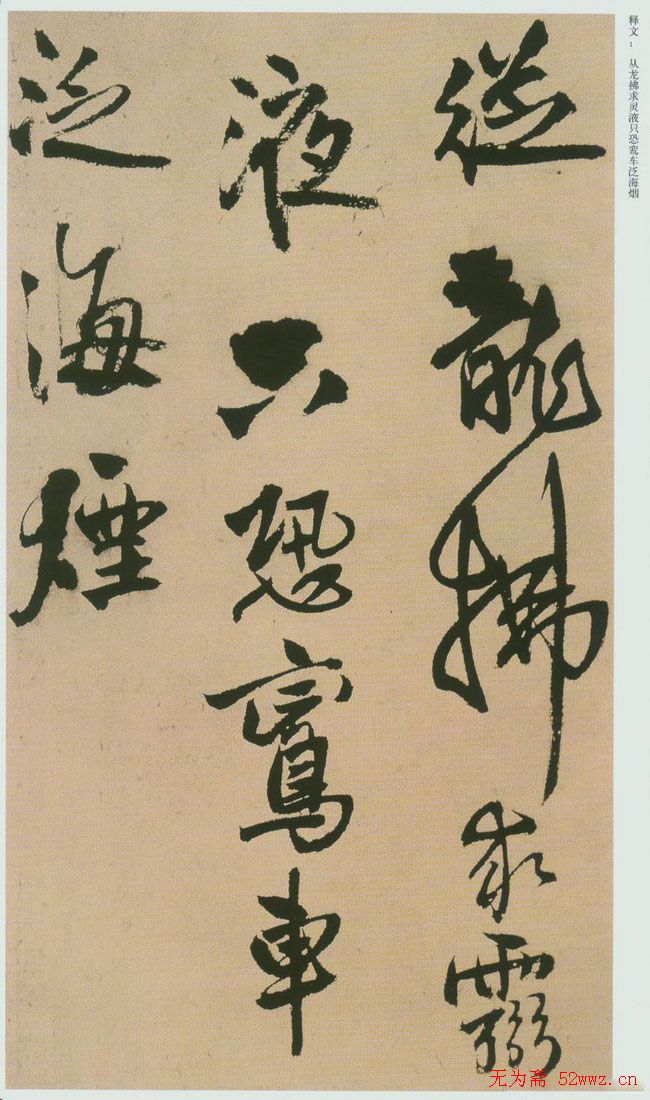 释文：从龙拂求灵液只恐鸾车泛海烟
從龍拂求靈
液只恐鸞車
泛海煙
无为斋 52wwz.cn